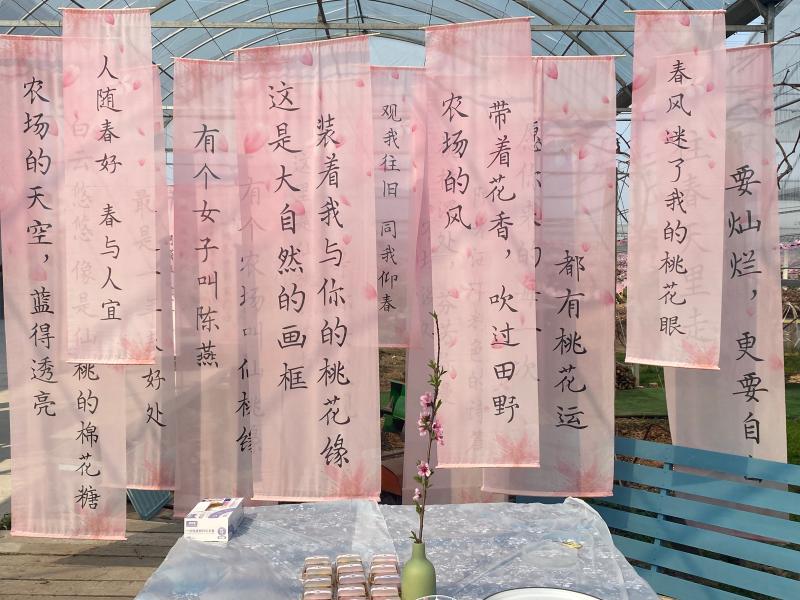 农场的天空，蓝得透亮
白云悠悠 像是仙桃的棉花糖
人随春好 春与人宜
好处
有个女子叫陈燕
有个农场叫仙桃缘
这是大自然的画框
装着我与你的桃花缘
观我往旧 同我仰春
农场的风
带着花香，吹过田野
都有桃花运
春风迷了我的桃花眼
要灿烂，更要自